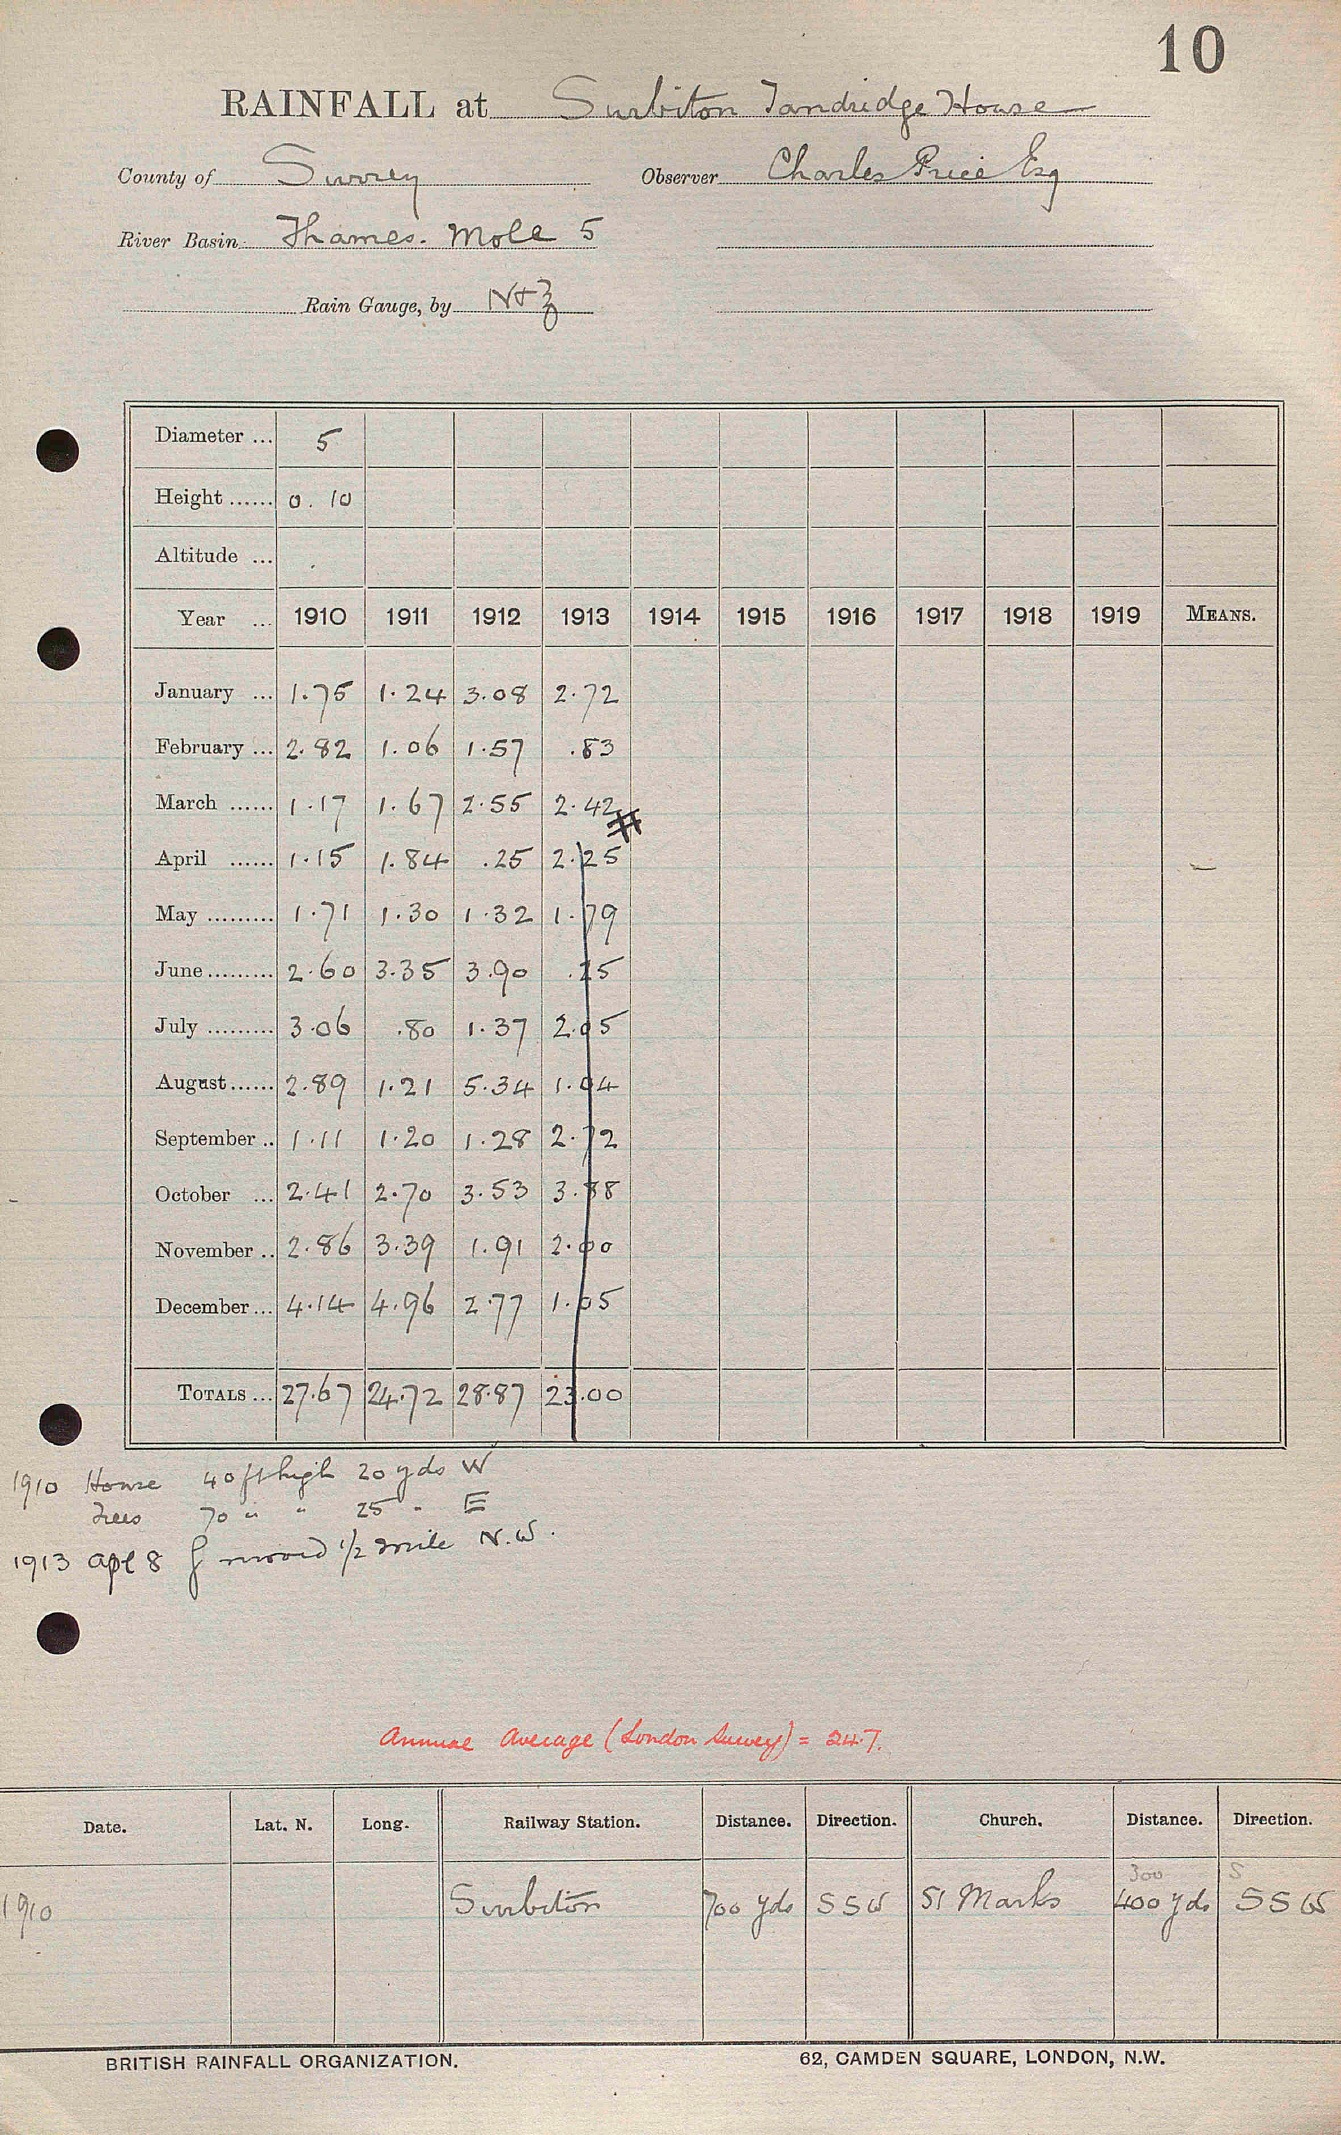 10
RAINFALL at Surbiton Tandridge House
County of Surrey Observer Charles Price Esq
River Basin Thames. Mole 5
Rain Gauge, by N+Z
Diameter ... 5
Height ...... 0. 10
Altitude ...
Year ... 1910 1911 1912 1913 1914 1915 1916 1917 1918 1919 MEANS.
January ... 1.75 1.24 3.08 2.72
February ... 2.82 1.06 1.57 .83
March ...... 1.17 1.67 2.55 2.42
#
April ...... 1.15 1.84 .25 2.25
May ......... 1.71 1.30 1.32 1.79
June ......... 2.60 3.35 3.90 .25
July ......... 3.06 .80 1.37 2.05
August ...... 2.89 1.21 5.34 1.04
September .. 1.11 1.20 1.28 2.72
October ... 2.41 2.70 3.53 3.88
November .. 2.86 3.39 1.91 2.00
December ... 4.14 4.96 2.77 1.05
TOTALS ... 27.67 24.72 28.87 23.00
1910 House 40 ft high 20 yds W
Trees 70 " " 25 " E
1913 Apl 8 g moved 1/2 mile N.W.
Annual Average (London Survey) = 24.7.
Date. Lat. N. Long. Railway Station. Distance. Direction. Church. Distance. Direction.
300 S
1910 Surbiton 700 yds SSW St Marks 400 yds SSW
BRITISH RAINFALL ORGANIZATION. 62, CAMDEN SQUARE, LONDON, N.W.